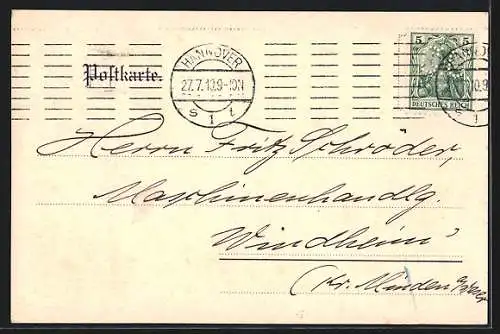 HANNOVER
27.7.10.9-10N
s 1 t
5 5
DEUTSCHES REICH
Postkarte.
Herrn Fritz Schröder,
Maschinenhandlg.
Windheim
(Kr. Minden a/Weser